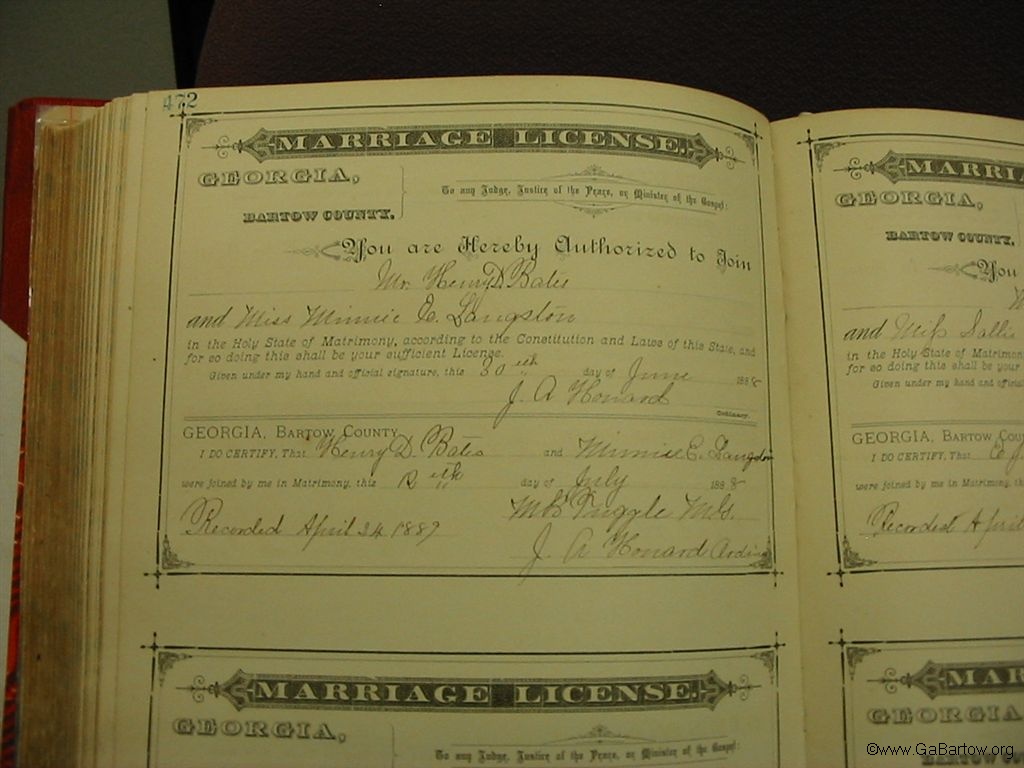 472
MARRIAGE LICENSE.
GEORGIA,
BARTOW COUNTY.
To any Judge, Justice of the Peace, or Minister of the Gospel:
You are Hereby Authorized to Join
Mr. Henry D. Bates
and Miss Minnie E. Langston
in the Holy State of Matrimony, according to the Constitution and Laws of this State, and
for so doing this shall be your sufficient License.
Given under my hand and official signature, this 30th day of June 1888
J. A Howard
Ordinary.
GEORGIA, BARTOW COUNTY
I DO CERTIFY, That Henry D. Bates and Minnie E. Langston
were joined by me in Matrimony, this day of July 1888
Tuggle M.G.
Recorded April 24 1889
J. A Howard
MARRIAGE LICENSE.
GEORGIA,
To any Judge, Justice of the Peace, or Minister of the Gospel:
MARRIA
GEORGIA,
BARTOW COUNTY.
You
and Miss Sallie
in the Holy State of Matrimon
for so doing this shall be your
Given under my hand and official
GEORGIA, BARTOW COU
I DO CERTIFY, That
were joined by me in Matrimony, th
Recorded April
MAR
GEORGIA
BARTOW CO
©www.GaBartow.org